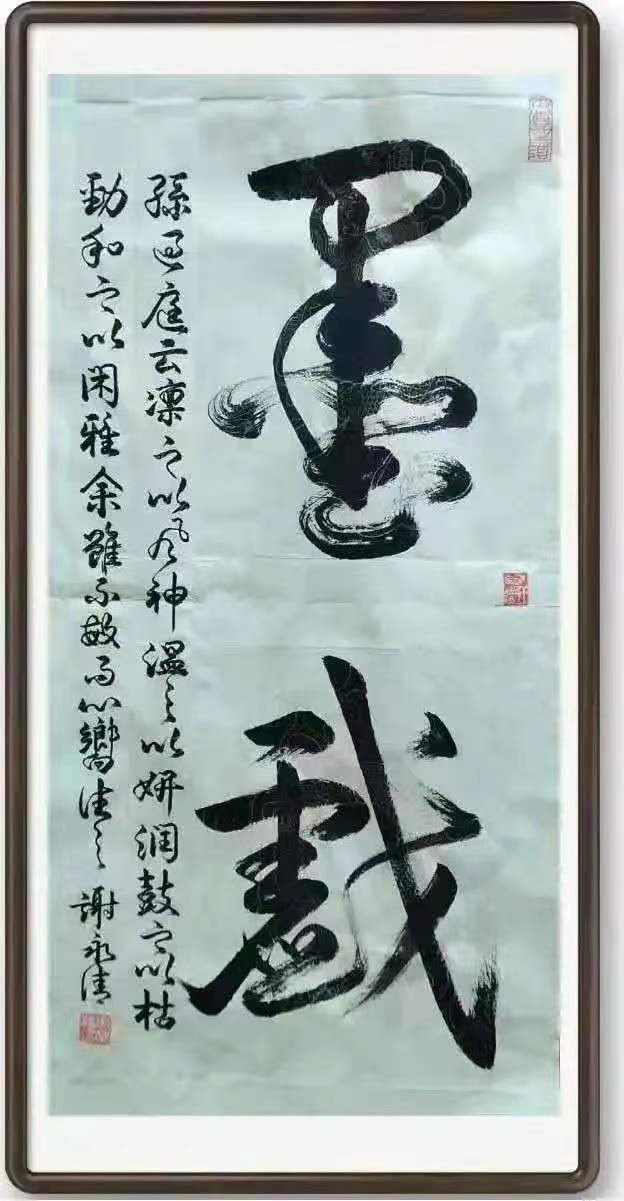 墨戲
孫過庭云凛之以風神温之以妍润鼓之以枯
勁和之以闲雅余雖不敏而心嚮往之
謝永清